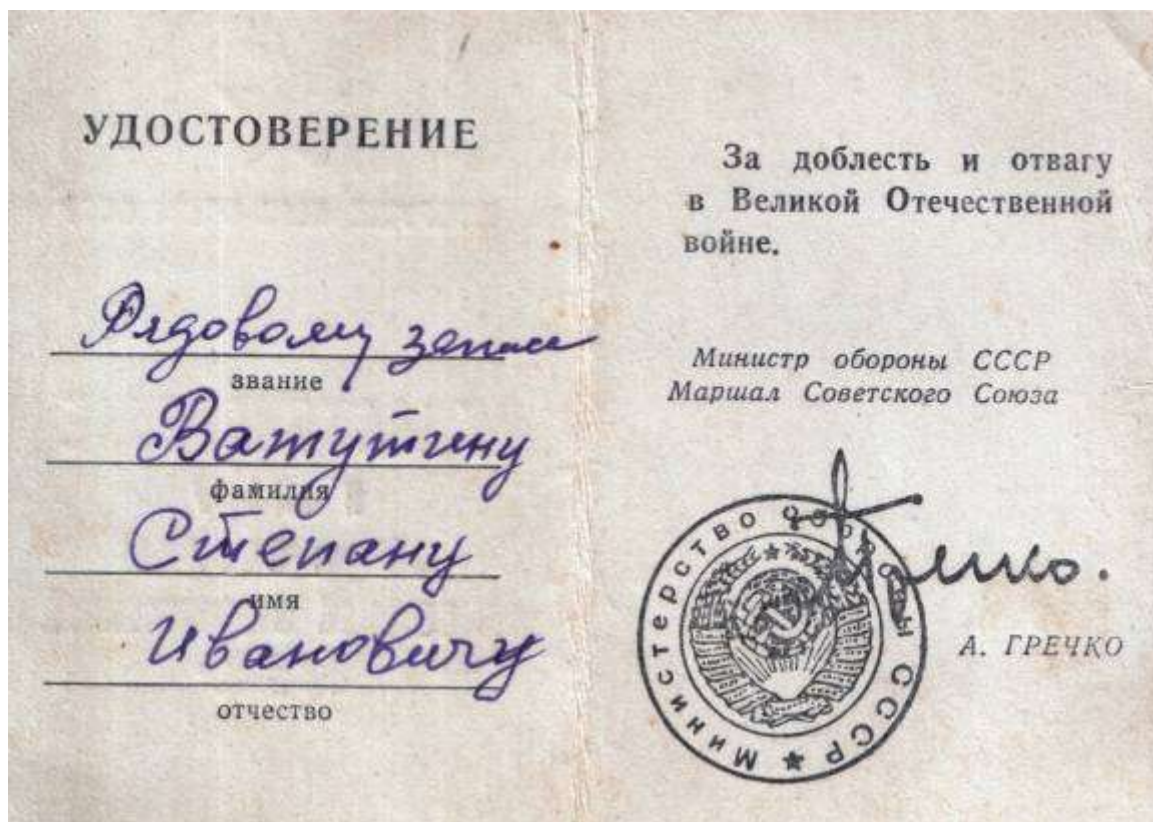 УДОСТОВЕРЕНИЕ
Рядовому запаса
звание
Ватутину
фамилия
Степану
имя
Ивановичу
отчество
За доблесть и отвагу
в Великой Отечественной
войне.
Министр обороны СССР
Маршал Советского Союза
Гречко.
А. ГРЕЧКО
Министерство обороны СССР